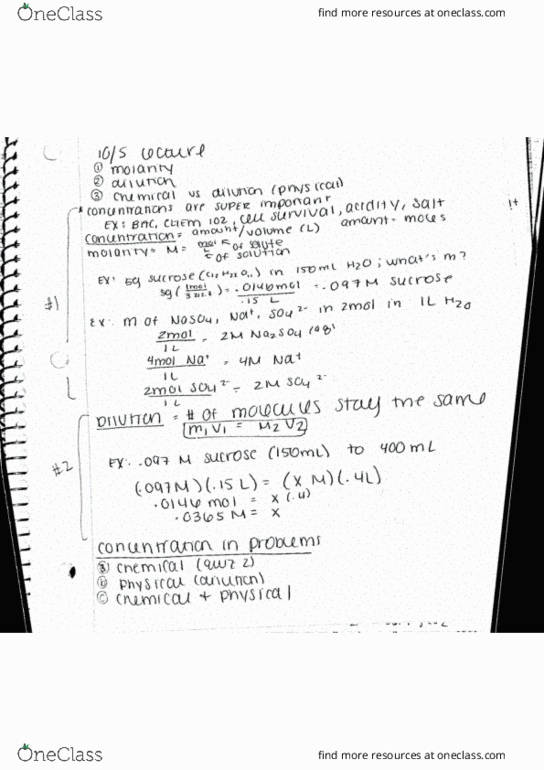 OneClass
find more resources at oneclass.com
10/5 lecture
① molarity
② dilution
③ chemical vs dilution (physical)
* concentrations are SUPER important
EX: BAC, CHEM 102, cell survival, acidity, salt
concentration = amount/volume (L) amount = moles
molarity = M = mol of solute / L of solution
#1
EX: 5g sucrose (C12H22O11) in 150mL H2O; what's m?
5g ( ) = .0146mol / .15 L = .097M sucrose
EX: M of Na+, SO4 2- in 2mol in 1L H2O
2mol / 1L = 2M Na2SO4
4mol Na+ / 1L = 4M Na+
2mol SO4 2- / 1L = 2M SO4 2-
DILUTION = # of molecules stay the same
M1V1 = M2V2
#2
EX: .097 M sucrose (150mL) to 400mL
(.097M)(.15L) = (X M)(.4L)
.0146 mol = X (.4)
.0365 M = X
concentration in problems
chemical (quiz 2)
ⓑ physical (dilution)
ⓒ chemical + physical
OneClass
find more resources at oneclass.com